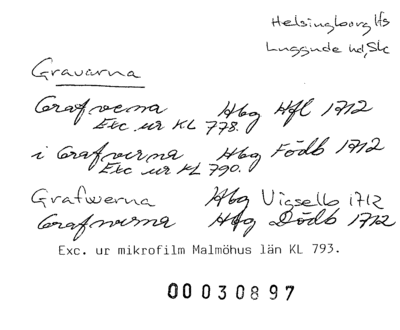 Helsingborg lfs
Luggude hd, Sk
Gravarna
Grafverna Hbg Hfl 1712
Exc ur KL 778.
i Grafverna Hbg Födb 1712
Exc ur KL 790.
Grafwerna Hbg Vigselb 1712
Grafwerna Hbg Dödb 1712
Exc. ur mikrofilm Malmöhus län KL 793.
00030897